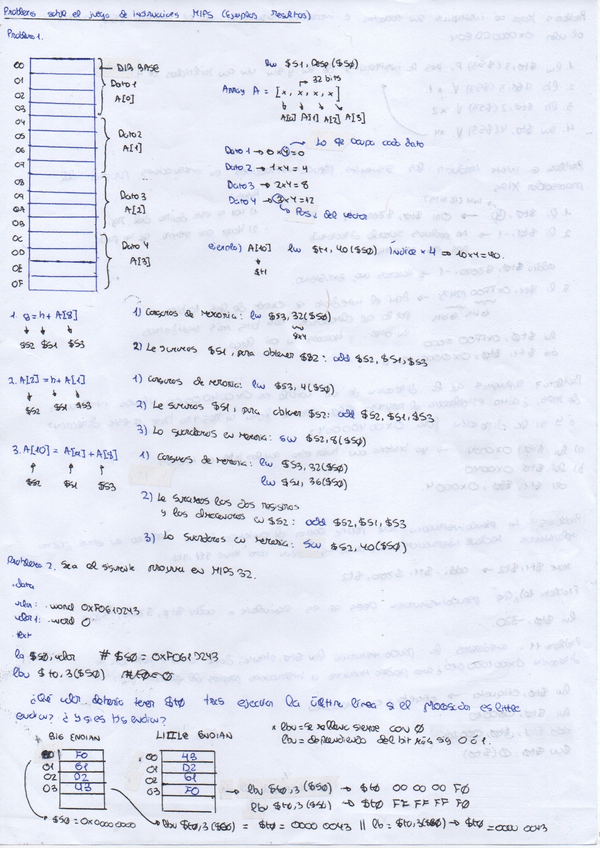 Problemas sobre el juego de instrucciones MIPS (Ejemplos Resueltos)
Problema 1.
lw $S1, Desp($SØ)
32 bits
Array A = [x, x, x, x]
A[0] A[1] A[2] A[3]
00 → DIR BASE
01 Dato 1
02 A[0]
03
04
05 Dato 2
06 A[1]
07
08
09 Dato 3
0A A[2]
0B
0C
0D Dato 4
0E A[3]
0F
Lo que ocupa cada dato
Dato 1 → 0x4=0
Dato 2 → 1x4=4
Dato 3 → 2x4=8
Dato 4 → 3x4=12
Pos. del vector
ejemplo) A[10] lw $t1, 40($SØ) Índice x 4 ⇒ 10x4=40.
$t1
1. g=h+A[8]
$S2 $S1 $S3
1) Cargamos de memoria: lw $S3, 32($SØ)
8x4
2) Le sumamos $S1, para obtener $S2: add $S2, $S1, $S3
2. A[2]=h+A[1]
$S2 $S1 $S3
1) Cargamos de memoria: lw $S3, 4($SØ)
2) Le sumamos $S1, para obtener $S2: add $S2, $S1, $S3
3) Lo guardamos en memoria: sw $S2, 8($SØ)
3. A[10] = A[8] + A[9]
$S2 $S1 $S3
1) Cargamos de memoria: lw $S3, 32($SØ)
lw $S1, 36($SØ)
2) Le sumamos los dos registros
y los almacenamos en $S2: add $S2, $S1, $S3
3) Lo guardamos en memoria: sw $S2, 40($SØ)
Problema 2. Sea el siguiente programa en MIPS 32.
.data
valor: .word 0xF061D243
valor1: .word 0
.text
la $SØ, valor # $SØ = 0xF061D243
lbu $t0, 3($SØ)
¿Qué valor debería tener $tØ tras ejecutar la última línea si el procesador es little
endian? ¿Y si es big endian?
* lbu = se rellena siempre con Ø
lb = dependiendo del bit más sig 0 ó 1.
+ BIG ENDIAN
00 F0
01 61
02 D2
03 43
LITTLE ENDIAN
00 43
01 D2
02 61
03 F0
→ lbu $t0, 3($SØ) → $t0 00 00 00 F0
lb $t0, 3($SØ) → $tØ FF FF FF F0
$SØ = 0x0000 0000
lbu $t0, 3($SØ) = $t0 = 0000 0043 || lb = $t0, 3($SØ) → $t0 = 0000 0043